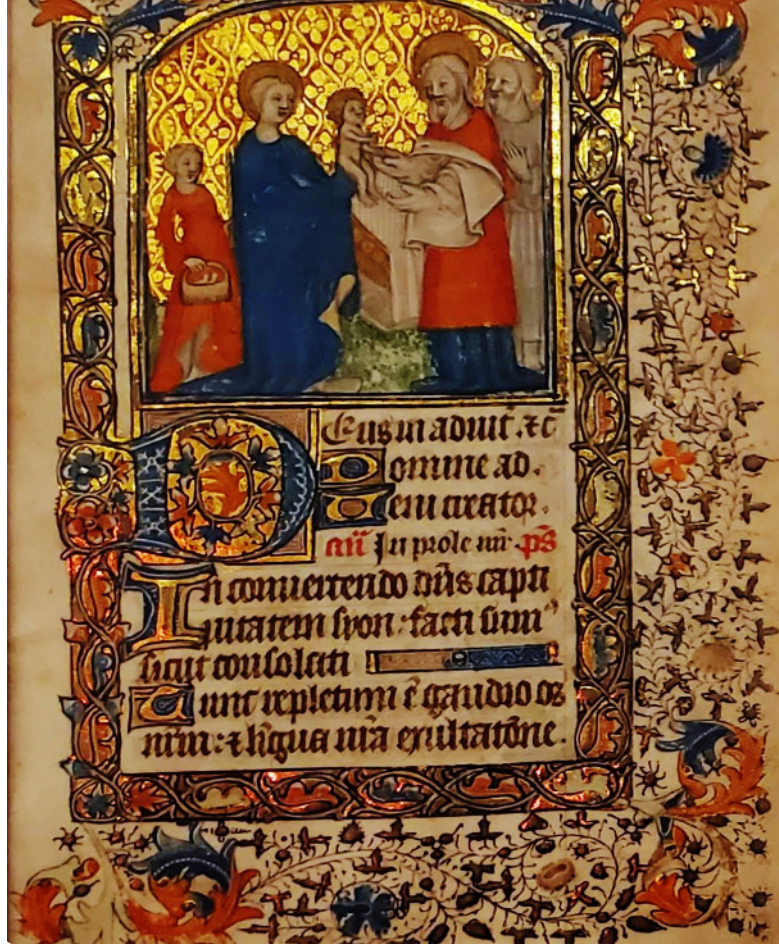 Deus in adiut̄. ⁊c̄
Domine ad.
Veni creator.
añ In prole m̄r. p̄s
In conuertendo dñs capti
uitatem syon: facti sum᷒
sicut consolati
Tunc repletum ē gaudio os
nr̄m: ⁊ ligua nr̄a exultatōne.